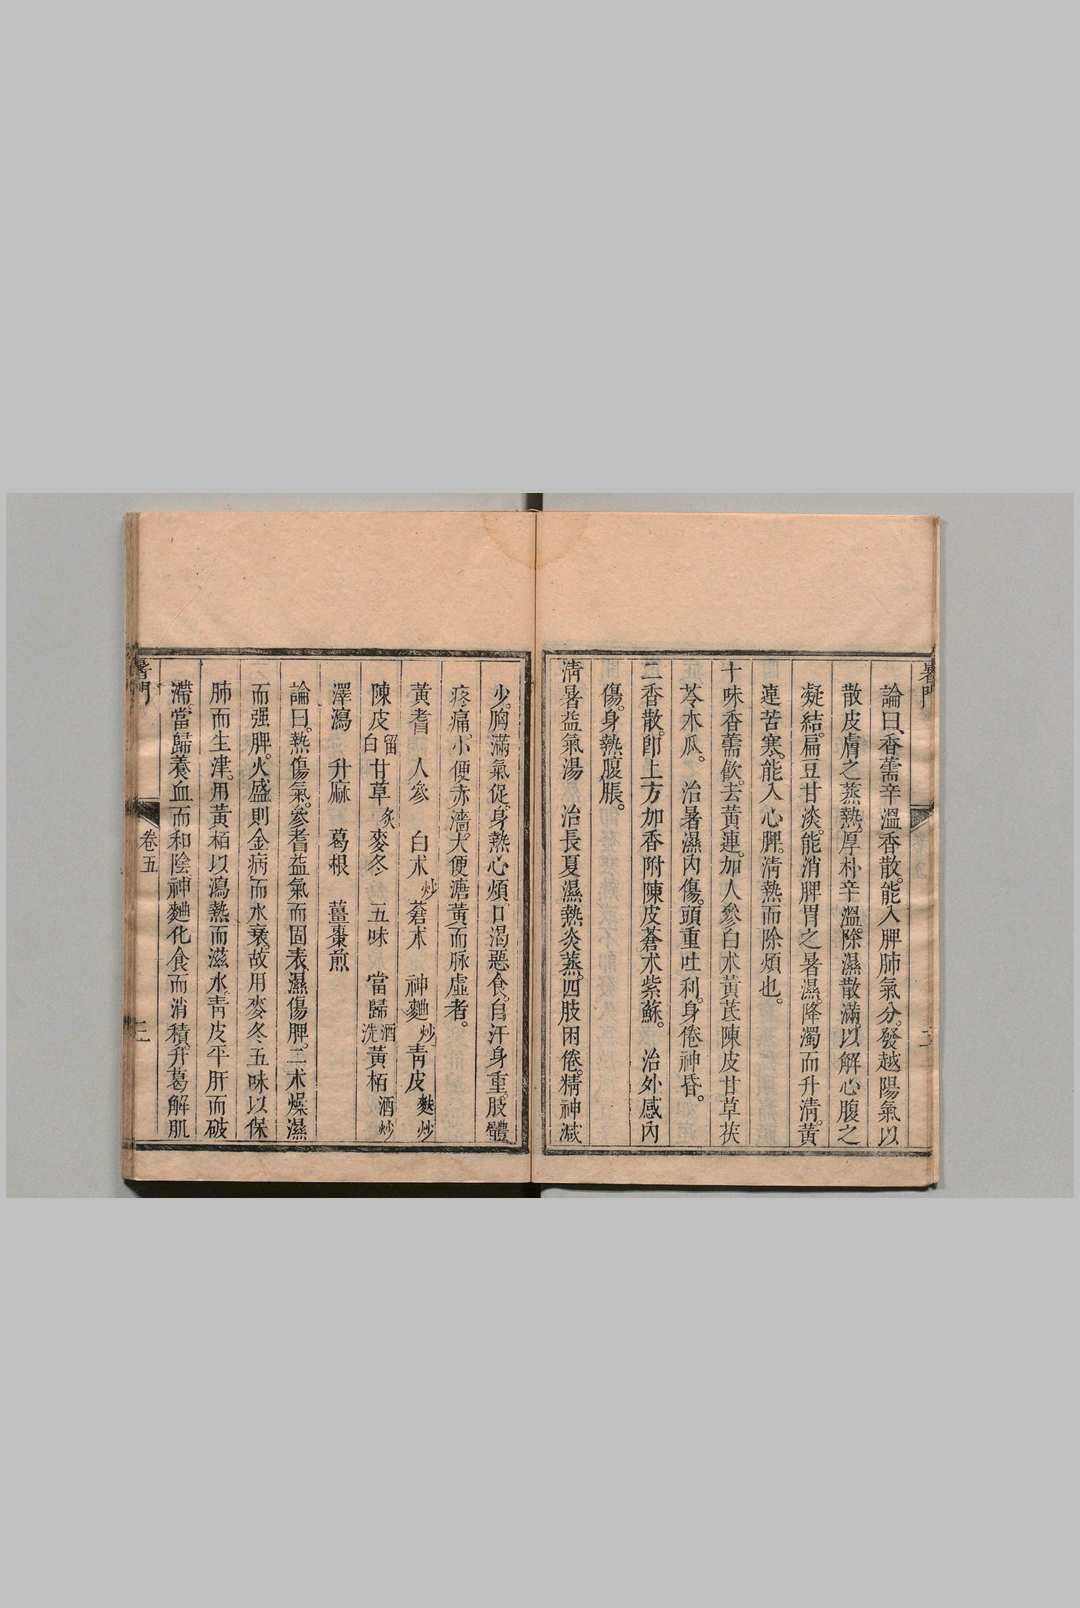 暑門
三
論曰、香薷辛溫香散。能入脾肺氣分。發越陽氣以
散皮膚之蒸熱、厚朴辛溫除濕散滿、以解心腹之
凝結。扁豆甘淡。能消脾胃之暑濕、降濁而升淸。黃
連苦寒。能入心脾。淸熱而除煩也。
十味香薷飮。去黃連。加人參白朮黃芪陳皮甘草茯
苓木瓜。　治暑濕內傷。頭重吐利。身倦神昏。
二香散。卽上方加香附陳皮蒼朮紫蘇。　治外感內
傷。身熱腹脹。
淸暑益氣湯　治長夏濕熱炎蒸。四肢困倦。精神減
少。胸滿氣促。身熱心煩、口渴惡食。自汗身重。肢體
疼痛。小便赤濇。大便溏黃而脉虛者。
黃耆　人參　白朮炒蒼朮　神麯炒靑皮麩炒
陳皮留白甘草炙麥冬　五味　當歸酒洗黃栢酒炒
澤瀉　升麻　葛根　薑棗煎
論曰。熱傷氣。參耆益氣而固表。濕傷脾。二朮燥濕
而强脾。火盛則金病而水衰。故用麥冬五味以保
肺而生津。用黃栢以瀉熱而滋水。靑皮平肝而破
滯。當歸養血而和陰。神麯化食而消積。升葛解肌
暑門
卷五
三